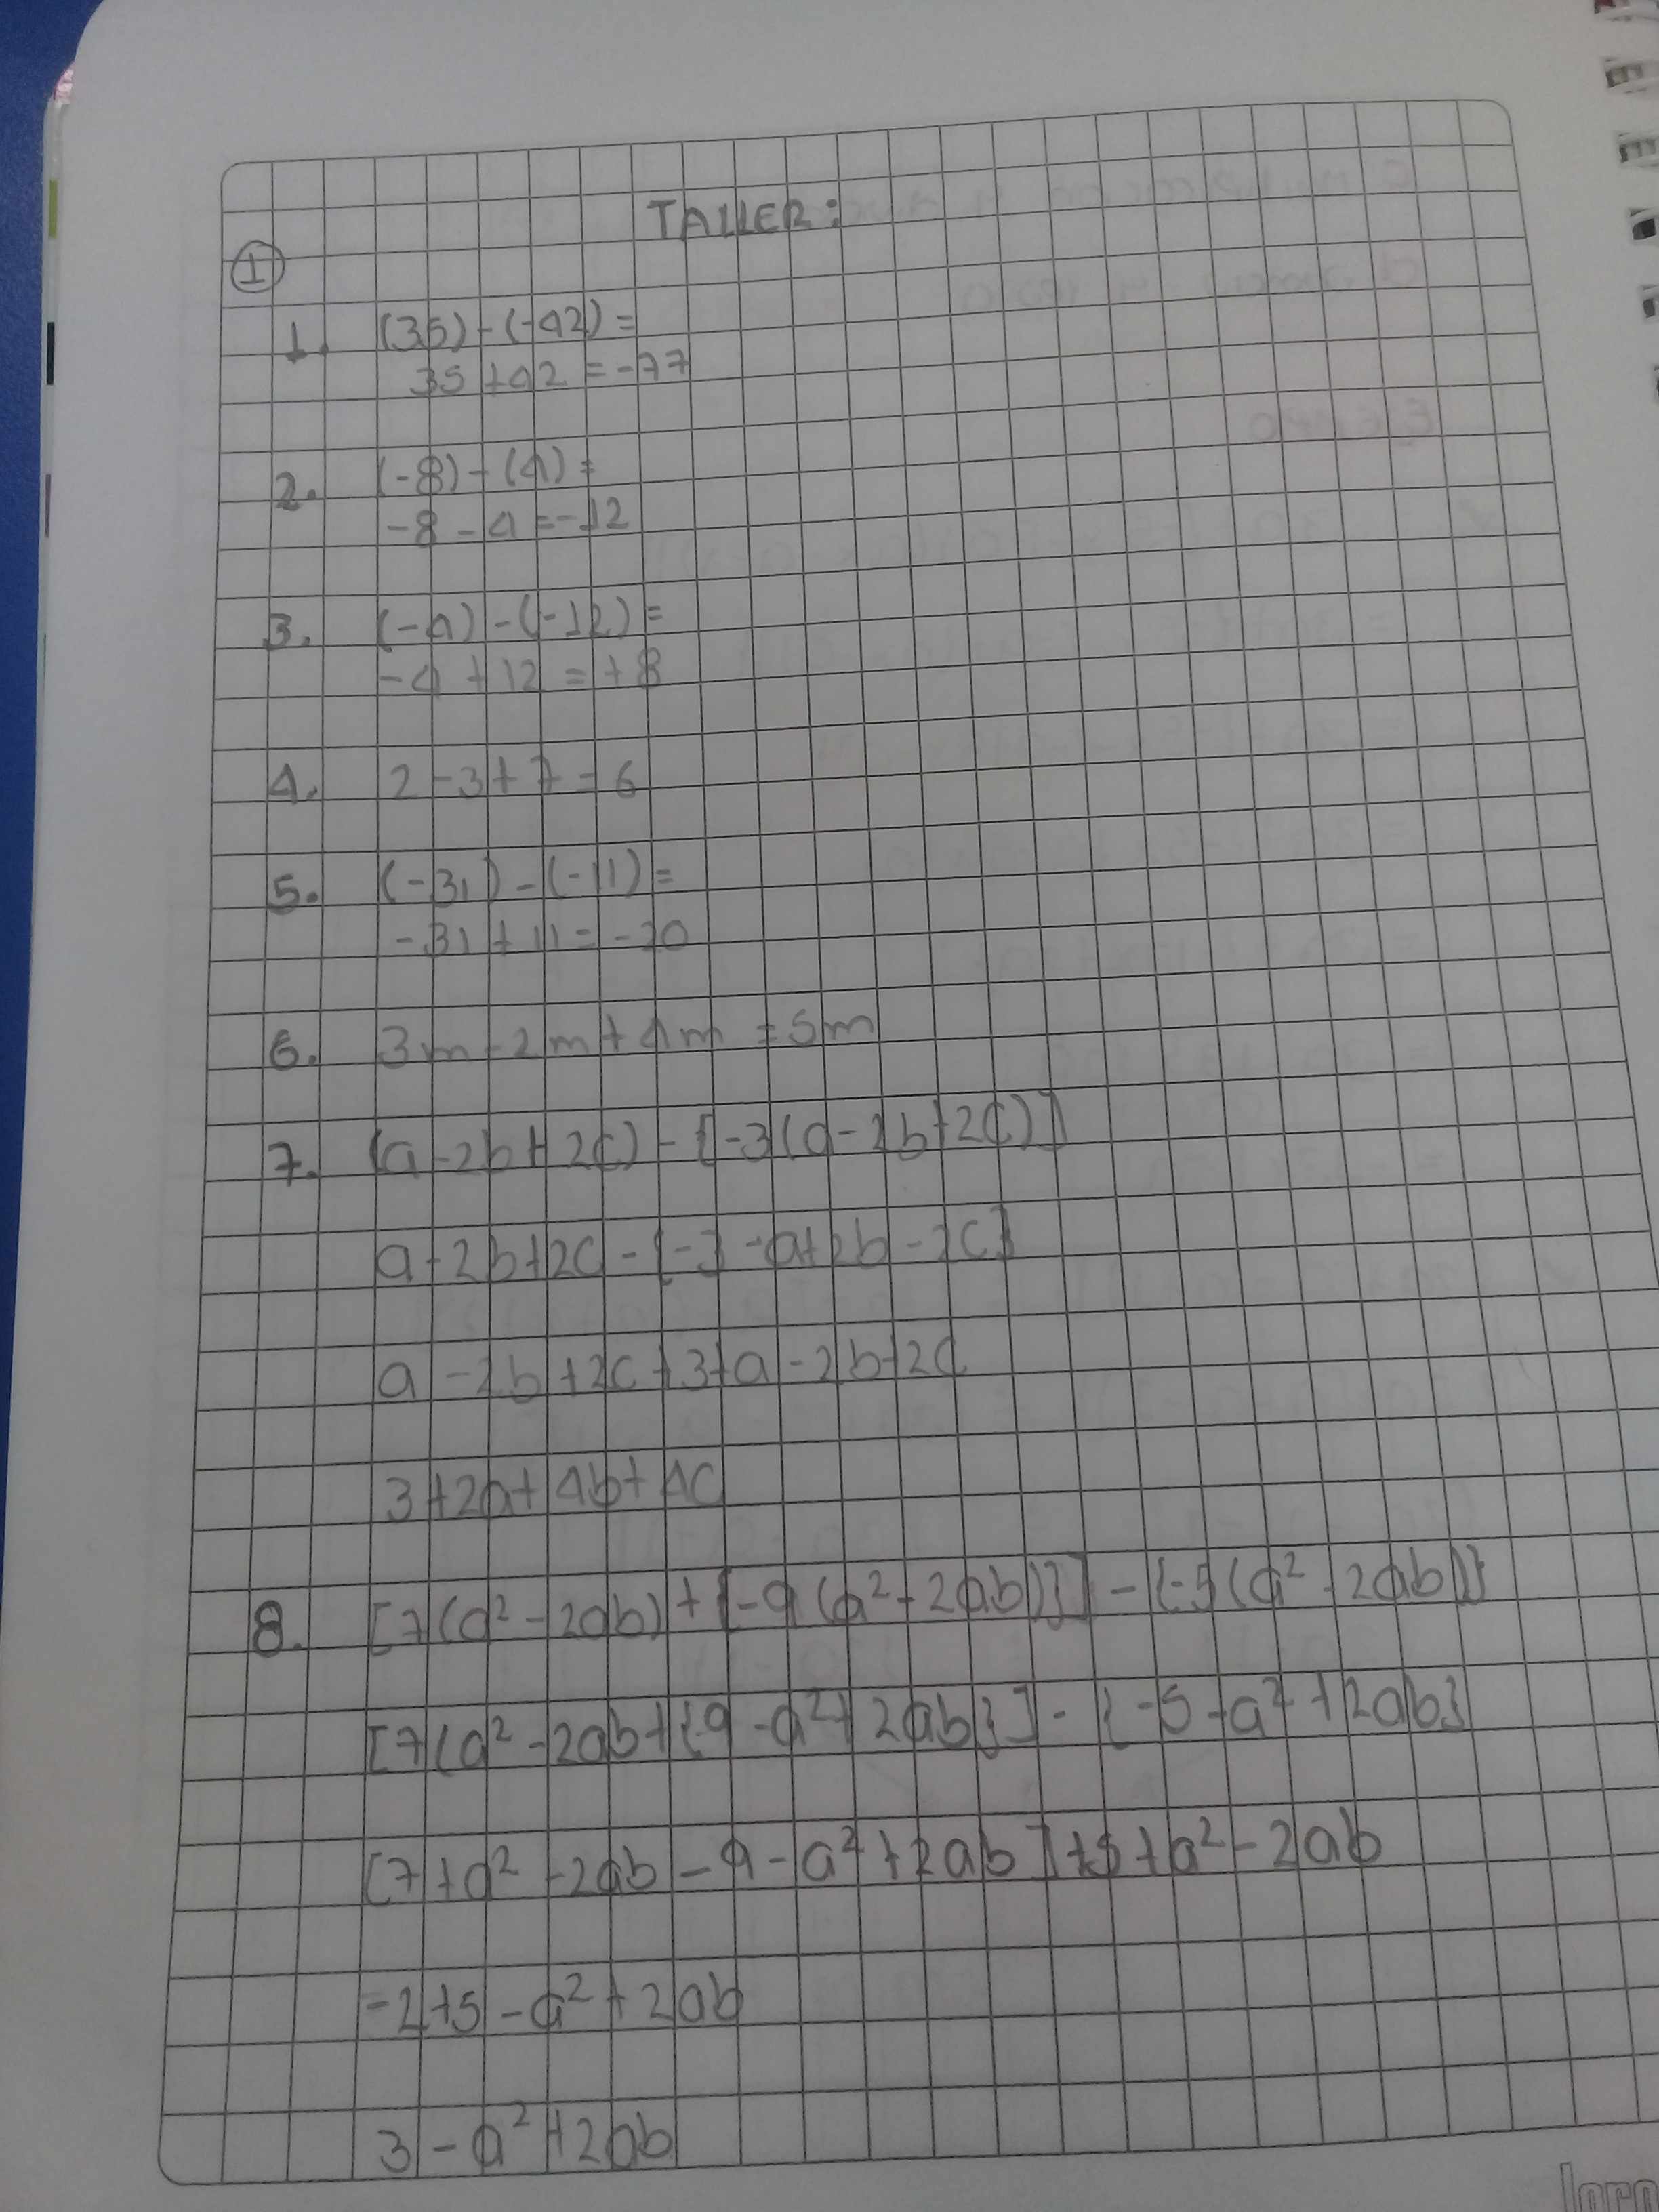 TALLER:
①
1. (35) - (-42) =
35 + 42 = -77
2. (-8) - (4) =
-8 - 4 = -12
3. (-4) - (-12) =
-4 + 12 = +8
4. 2 - 3 + 7 = 6
5. (-31) - (-11) =
-31 + 11 = -20
6. 3m - 2m + 4m = 5m
7. (a - 2b + 2c) - {-3(a - 2b + 2c)}
a - 2b + 2c - {-3 - a + 2b - 2c}
a - 2b + 2c + 3 + a - 2b + 2c
3 + 2a + 4b + 4c
8. [7(a² - 2ab) + {-9(a² - 2ab)}] - {-5(a² - 2ab)}
[7(a² - 2ab + {-9 - a² + 2ab}] - {-5 - a² + 2ab}
[7 + a² - 2ab - 9 - a² + 2ab] + 5 + a² - 2ab
-2 + 5 - a² + 2ab
3 - a² + 2ab